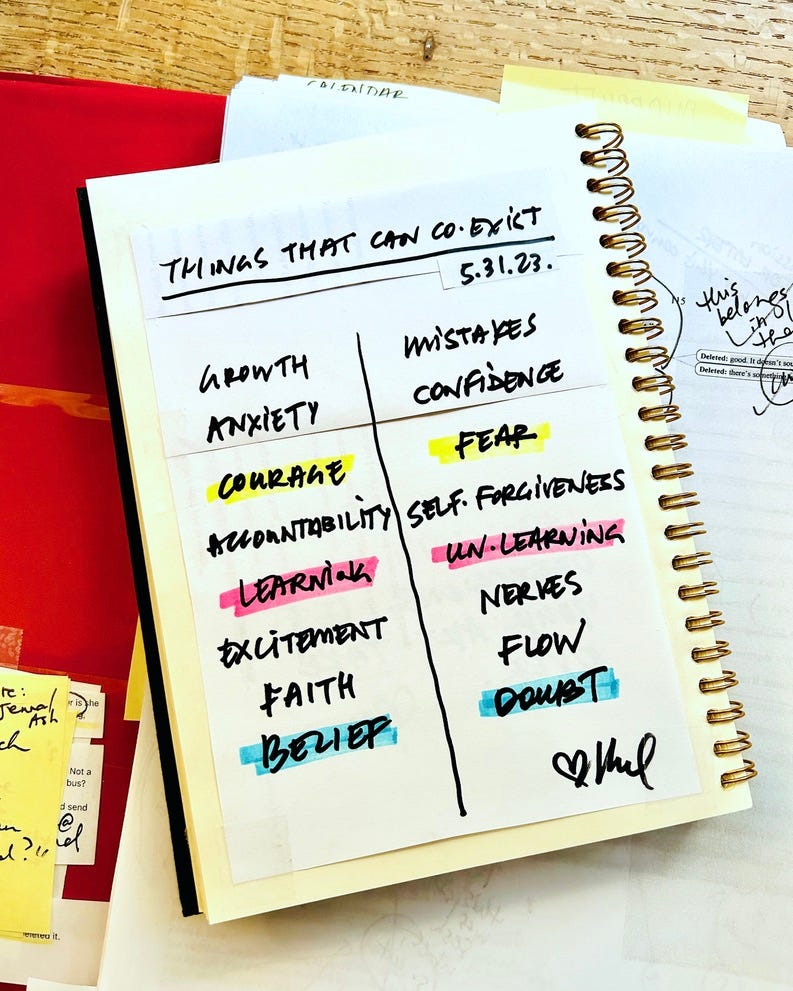 CALENDAR
THINGS THAT CAN CO·EXIST
5.31.23.
GROWTH
MISTAKES
ANXIETY
CONFIDENCE
COURAGE
FEAR
ACCOUNTABILITY
SELF·FORGIVENESS
LEARNING
UN·LEARNING
EXCITEMENT
NERVES
FAITH
FLOW
BELIEF
DOUBT
this
belongs
in
the
Deleted: good. It doesn't sou
Deleted: there's something
re:
Jennah
Ash
r is she
Not a
bus?
d send
@
eleted it.